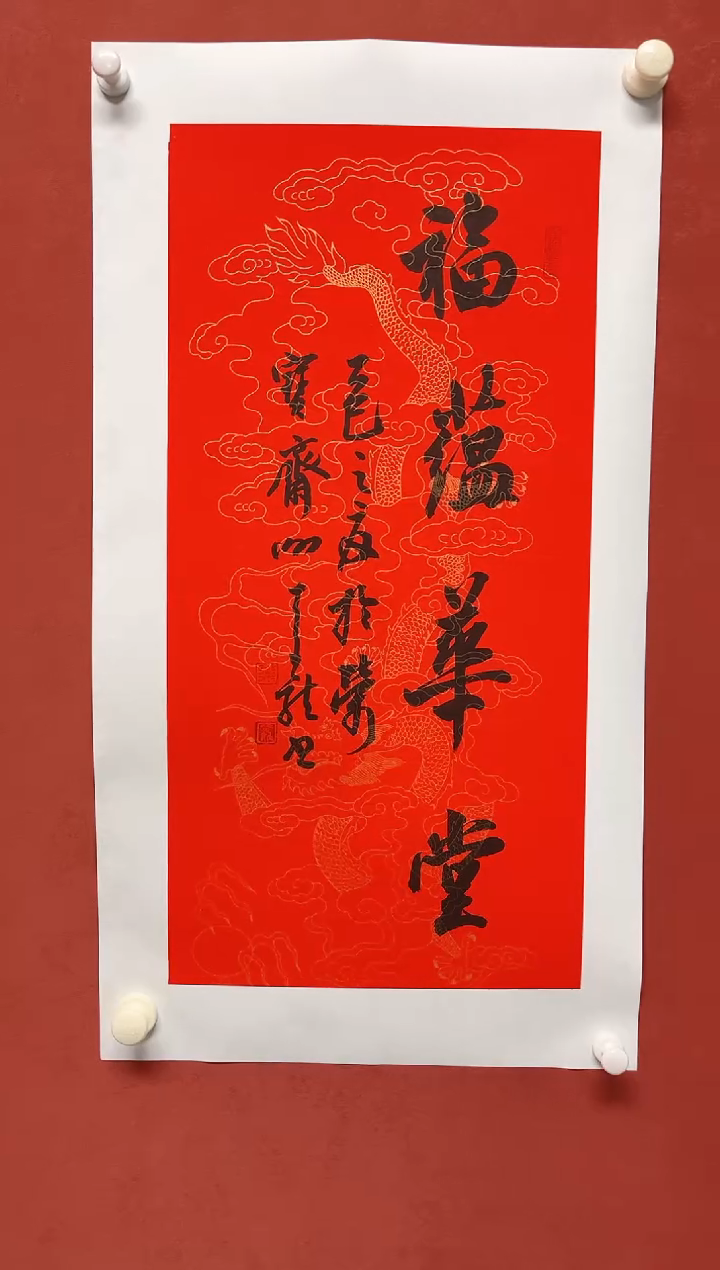 福藴華堂
乙巳之夏於榮
寶齋